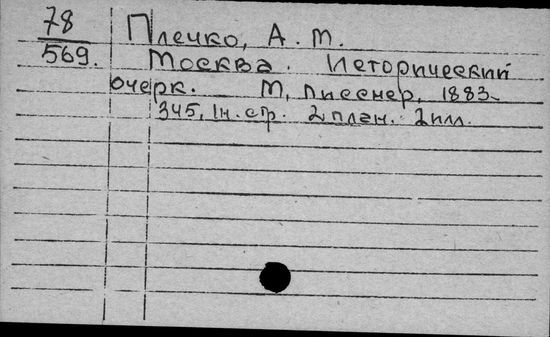 78 Плечко, А. М.
569. Москва. Исторический
очерк. М, Лисснер, 1883.
345, 1н. стр. 2 план. 2 илл.